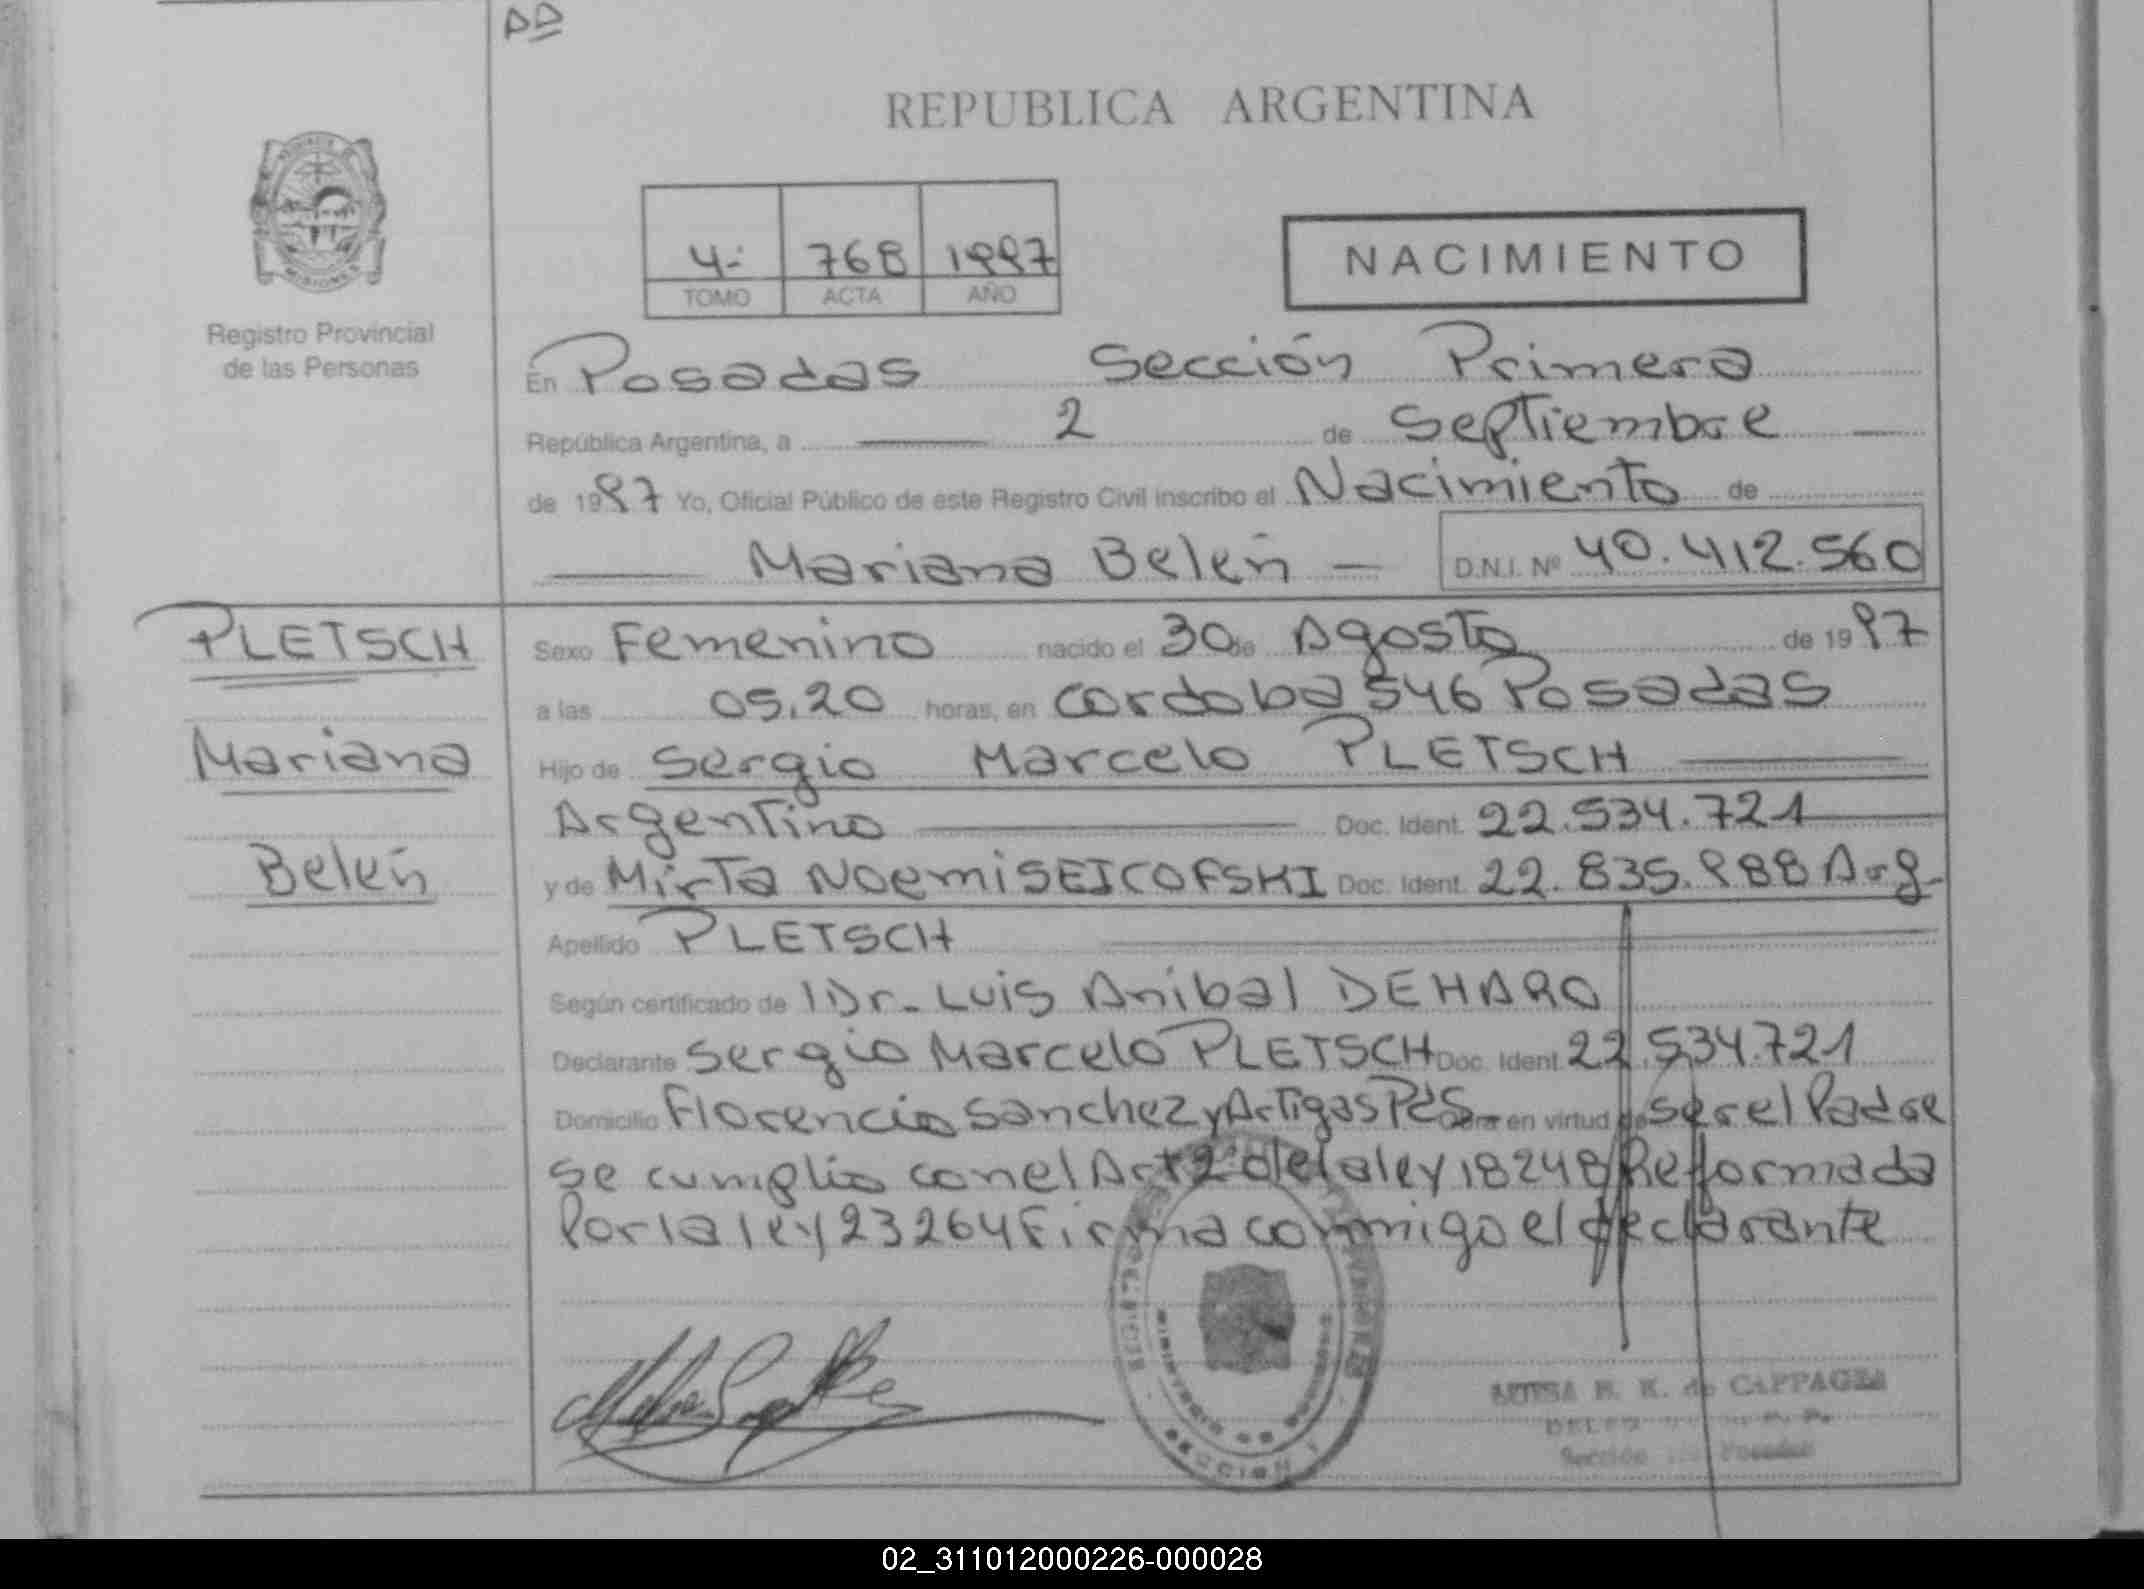 DD
REPUBLICA ARGENTINA
4-
768
1997
TOMO
ACTA
AÑO
NACIMIENTO
MISIONES
Registro Provincial
de las Personas
En Posadas Sección Primera
República Argentina, a 2 de Septiembre
de 1997 Yo, Oficial Público de este Registro Civil inscribo el Nacimiento de
Mariana Belén D.N.I. Nº 40.412.560
PLETSCH
Mariana
Belén
Sexo Femenino nacido el 30 de Agosto de 1997
a las 05.20 horas, en Cordoba 546 Posadas
Hijo de Sergio Marcelo PLETSCH
Argentino Doc. Ident. 22.534.721
y de Mirta Noemi SEICOFSKI Doc. Ident. 22.835.988 Arg-
Apellido PLETSCH
Según certificado de Dr- Luis Anibal DEHARO
Declarante Sergio Marcelo PLETSCH Doc. Ident. 22.534.721
Domicilio Florencio Sanchez y Artigas Pds en virtud de ser el Padre
Se cumplio con el Art 2º de la ley 18248 Reformada
Por la ley 23264 Firma conmigo el declarante
MINISTERIO DE GOBIERNO
SECCION 1
de CAPPAGLI
Sección Posadas
02_311012000226-000028